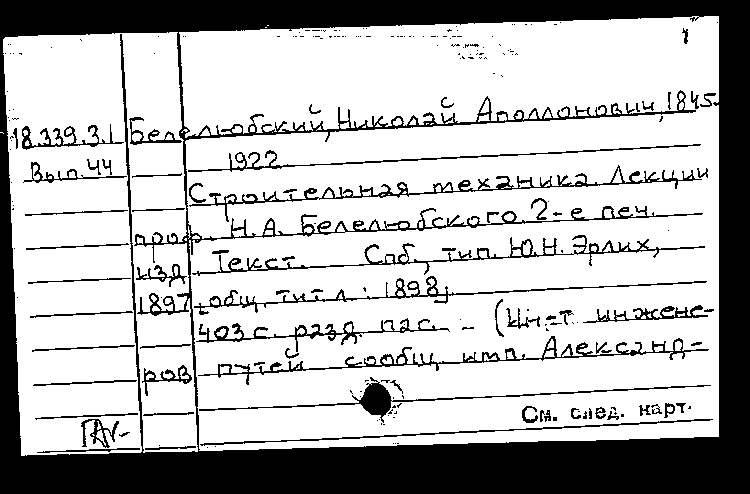 1
18.339.3.1 Белелюбский, Николай Аполлонович, 1845-
Вып. 44 1922
Строительная механика. Лекции
проф. Н.А. Белелюбского. 2-е печ.
изд. Текст. Спб., тип. Ю.Н. Эрлих,
1897, общ. тит. л.: 1898,
403 с. разд. паг. – (Ин-т инжене-
ров путей сообщ. имп. Александ-
См. след. карт.